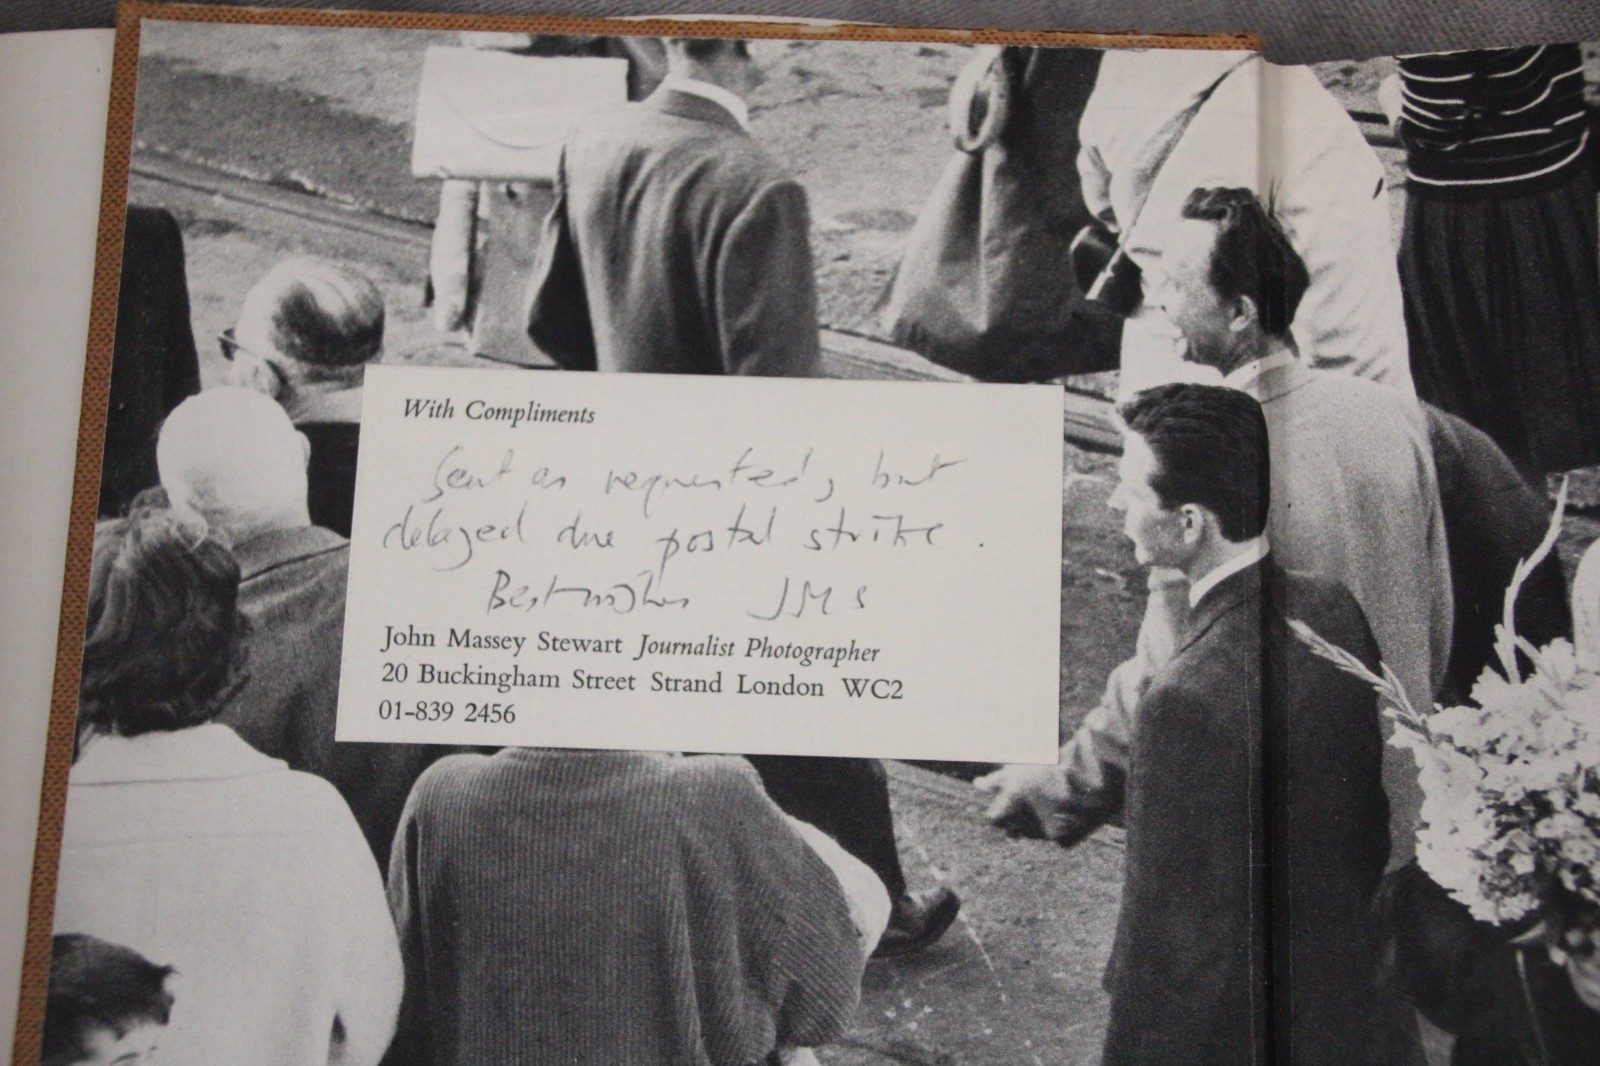 With Compliments
Sent as requested, but
delayed due postal strike.
Best wishes JMS
John Massey Stewart Journalist Photographer
20 Buckingham Street Strand London WC2
01-839 2456